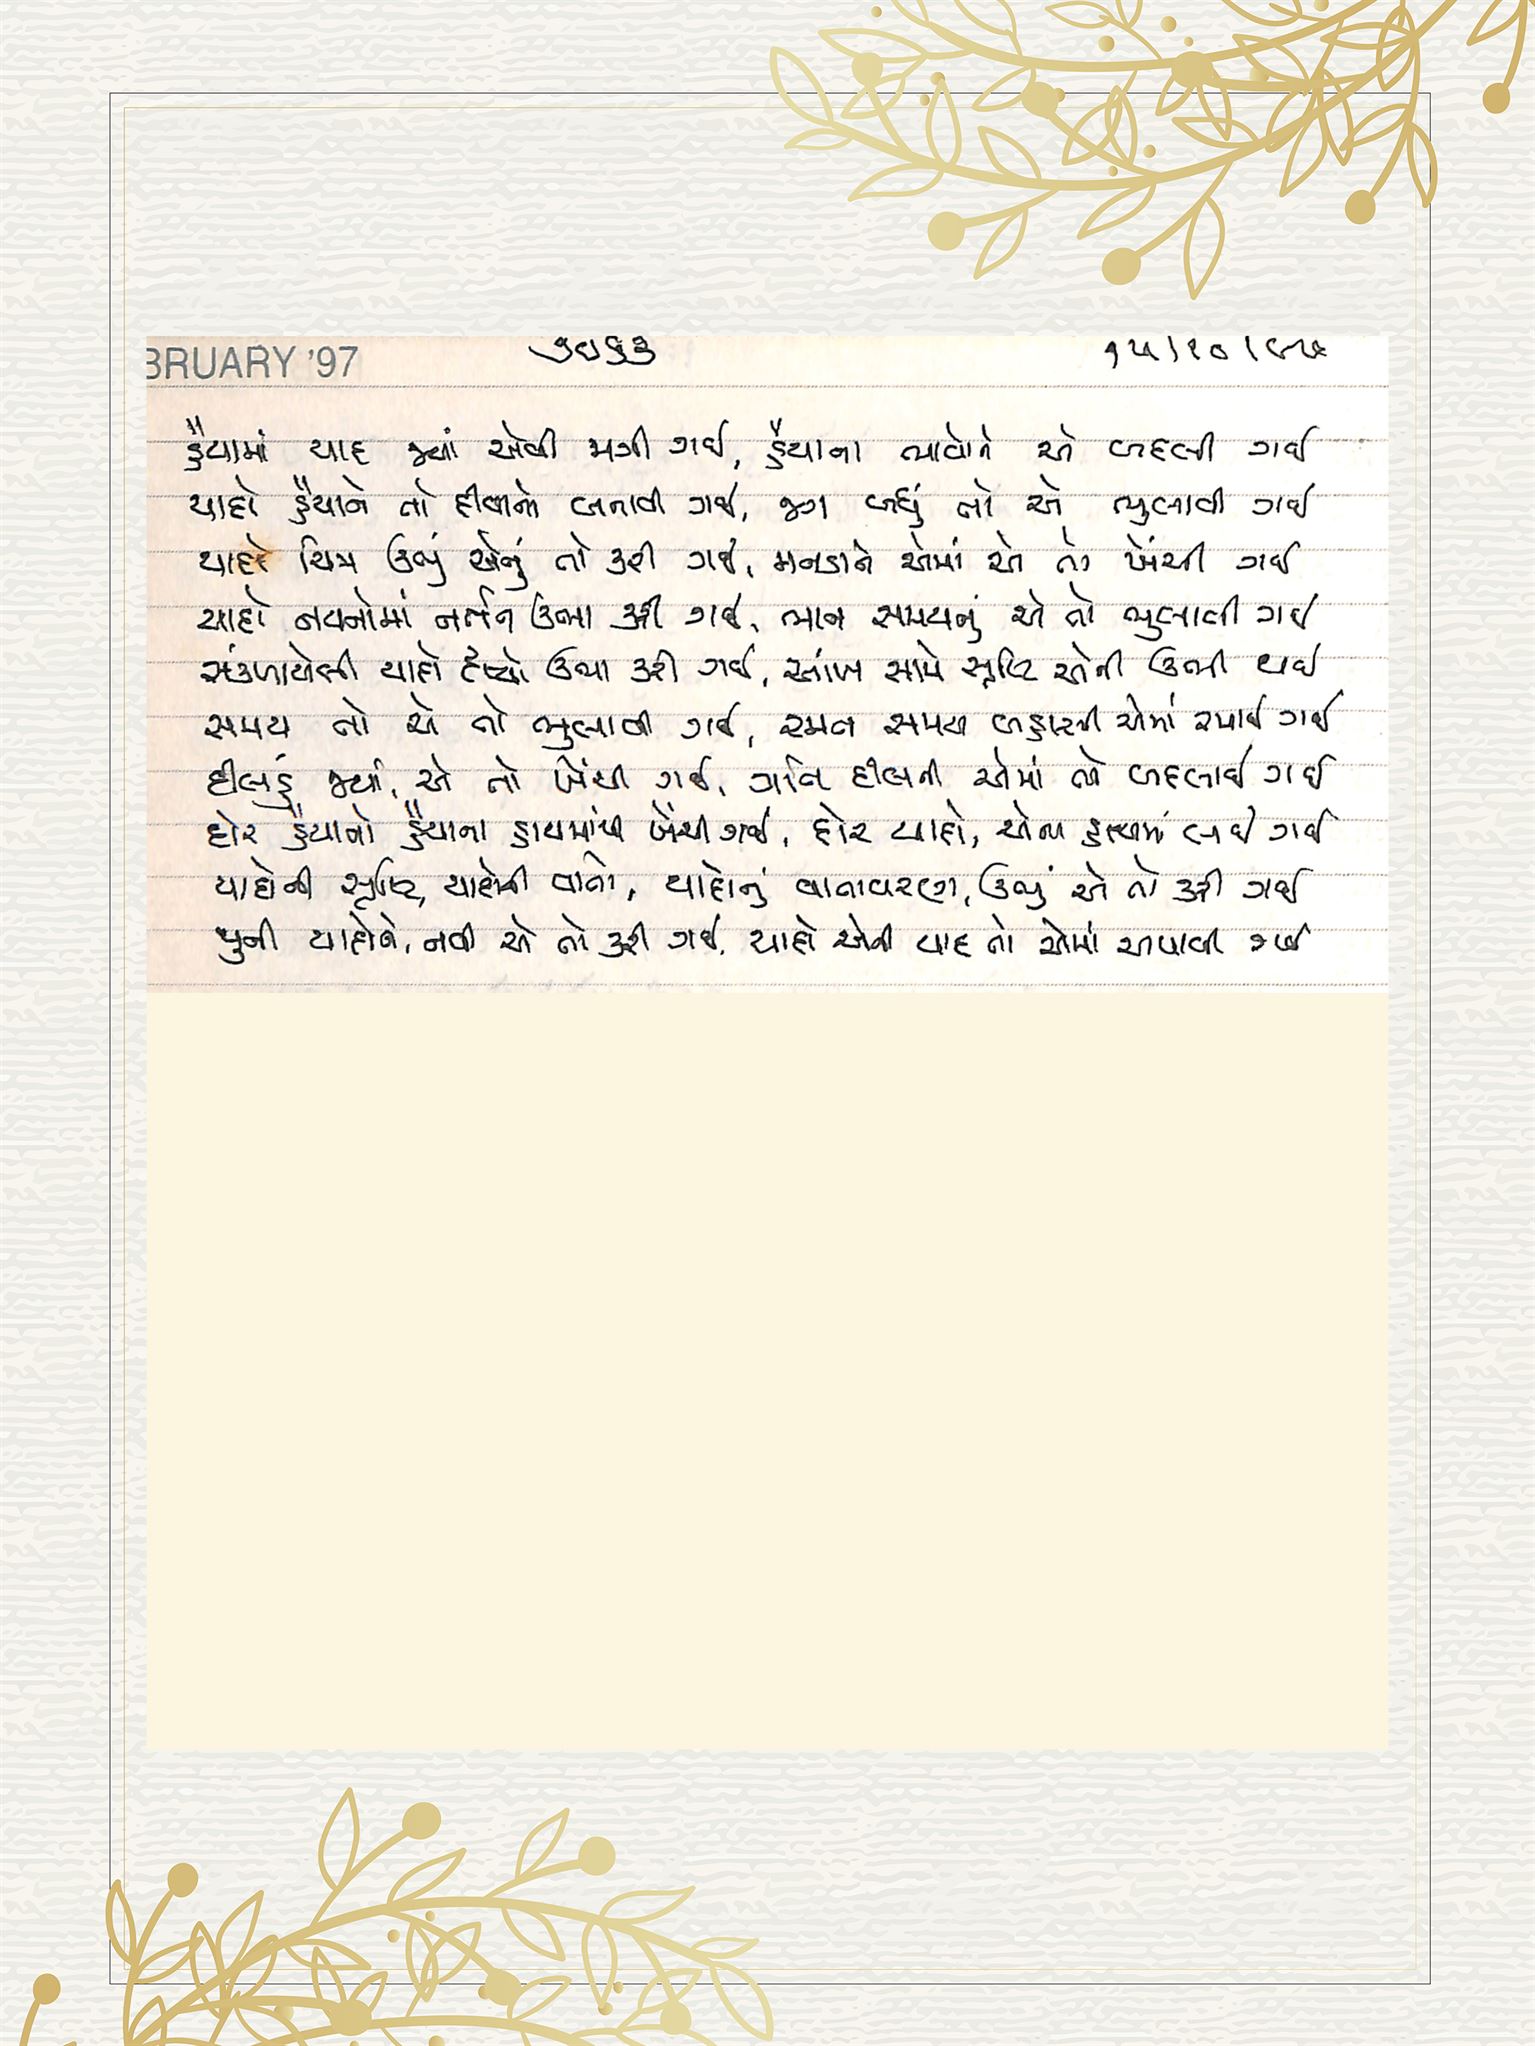 BRUARY '97 ૭૦૬૩ ૧૫/૧૦/૯૭
હૈયામાં યાદ જ્યાં એવી મળી ગઈ, હૈયાના ભાવોને એ બદલી ગઈ
યાદો હૈયાને તો દીવાનો બનાવી ગઈ, જગ બધું તો એ ભુલાવી ગઈ
યાદો ચિત્ર ઉભું એનું તો કરી ગઈ, મનડાને એમાં એ તો ખેંચી ગઈ
યાદો નયનોમાં નર્તન ઉભા કરી ગઈ, ભાન સમયનું એ તો ભુલાવી ગઈ
સંકળાયેલી યાદો દૃષ્યો ઉભા કરી ગઈ, આંખ સામે સૃષ્ટિ એની ઉભી થઈ
સમય તો એ તો ભુલાવી ગઈ, રમત સમય બહારની એમાં રમાઈ ગઈ
દીલડું જ્યાં, એ તો ખેંચી ગઈ, ગતિ દીલની એમાં તો બદલાઈ ગઈ
દોર હૈયાનો હૈયાના હાથમાંથી ખેંચી ગઈ, દોર યાદો, એના હાથમાં લઈ ગઈ
યાદોની સૃષ્ટિ, યાદોની વાતો, યાદોનું વાતાવરણ, ઉભું એ તો કરી ગઈ
જુની યાદોને, નવી એ તો કરી ગઈ, યાદો એની યાદ તો એમાં અપાવી ગઈ